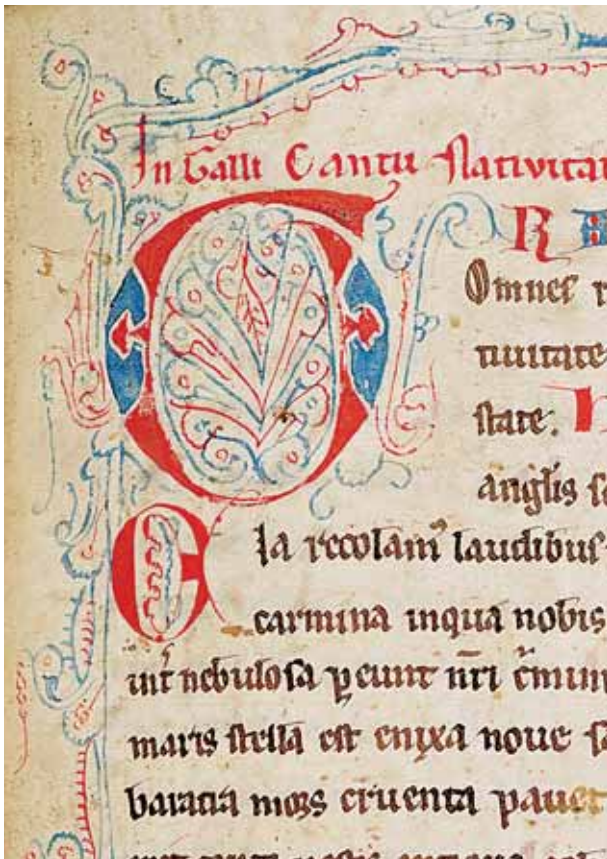 In Galli Cantu Nativitat
GRA
Omnes r
tiuitate
state. h
anglis se
Eia recolam᾽ laudibus
carmina inqua nobis
int᾽ nebulosa ꝑeunt nr̄i
maris stella est enixa noue
baratra mors cruenta pauet